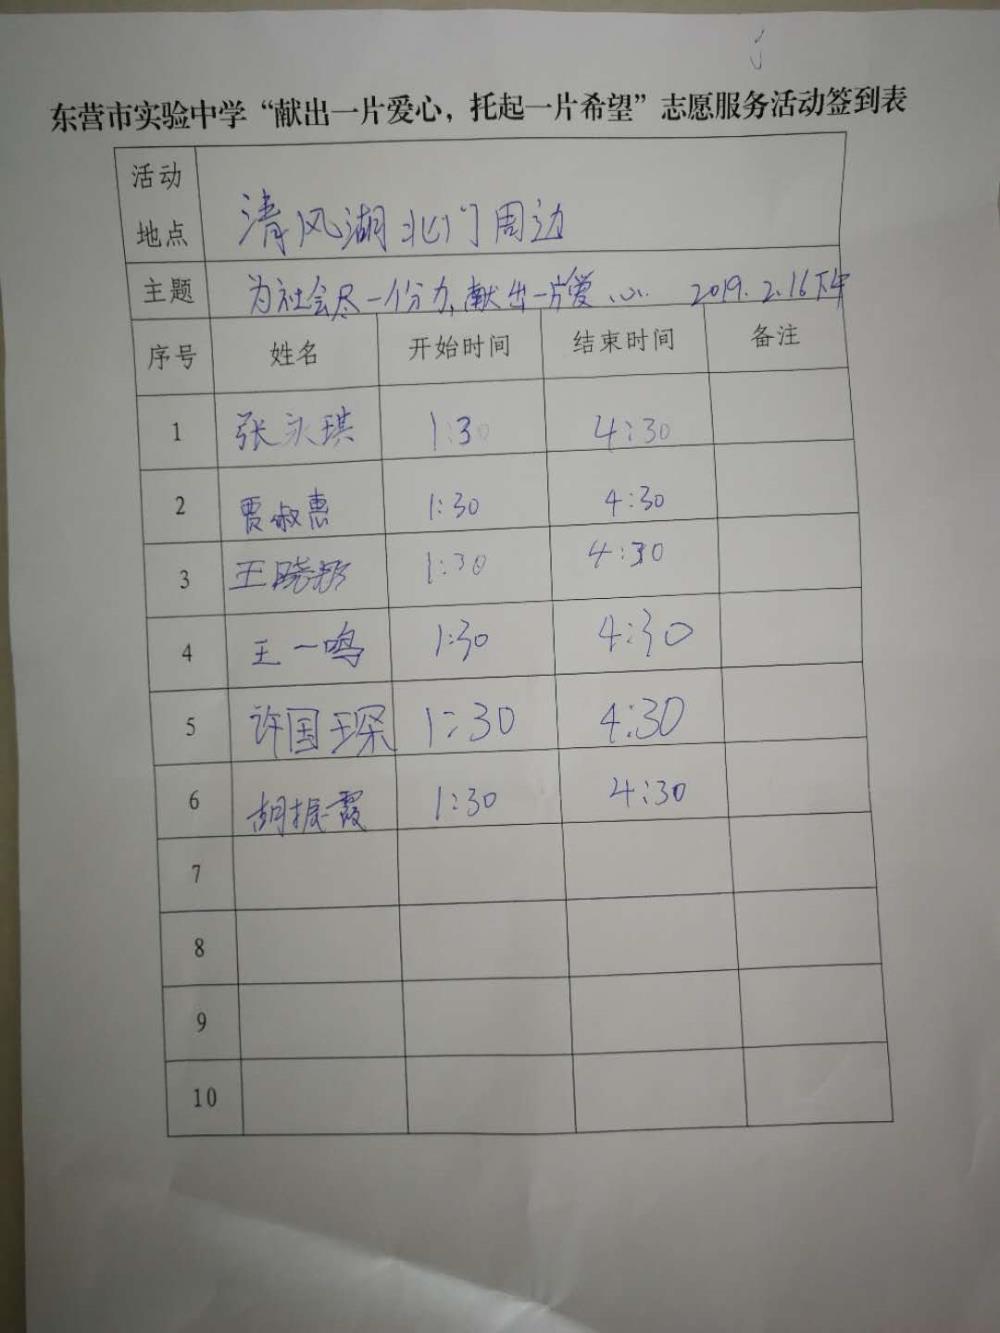 东营市实验中学“献出一片爱心，托起一片希望”志愿服务活动签到表
活动地点 清风湖北门周边
主题 为社会尽一份力,献出一片爱心. 2019.2.16下午
序号 姓名 开始时间 结束时间 备注
1 张永琪 1:30 4:30
2 贾淑惠 1:30 4:30
3 王晓 1:30 4:30
4 王一鸣 1:30 4:30
5 许国琛 1:30 4:30
6 胡振霞 1:30 4:30
7
8
9
10